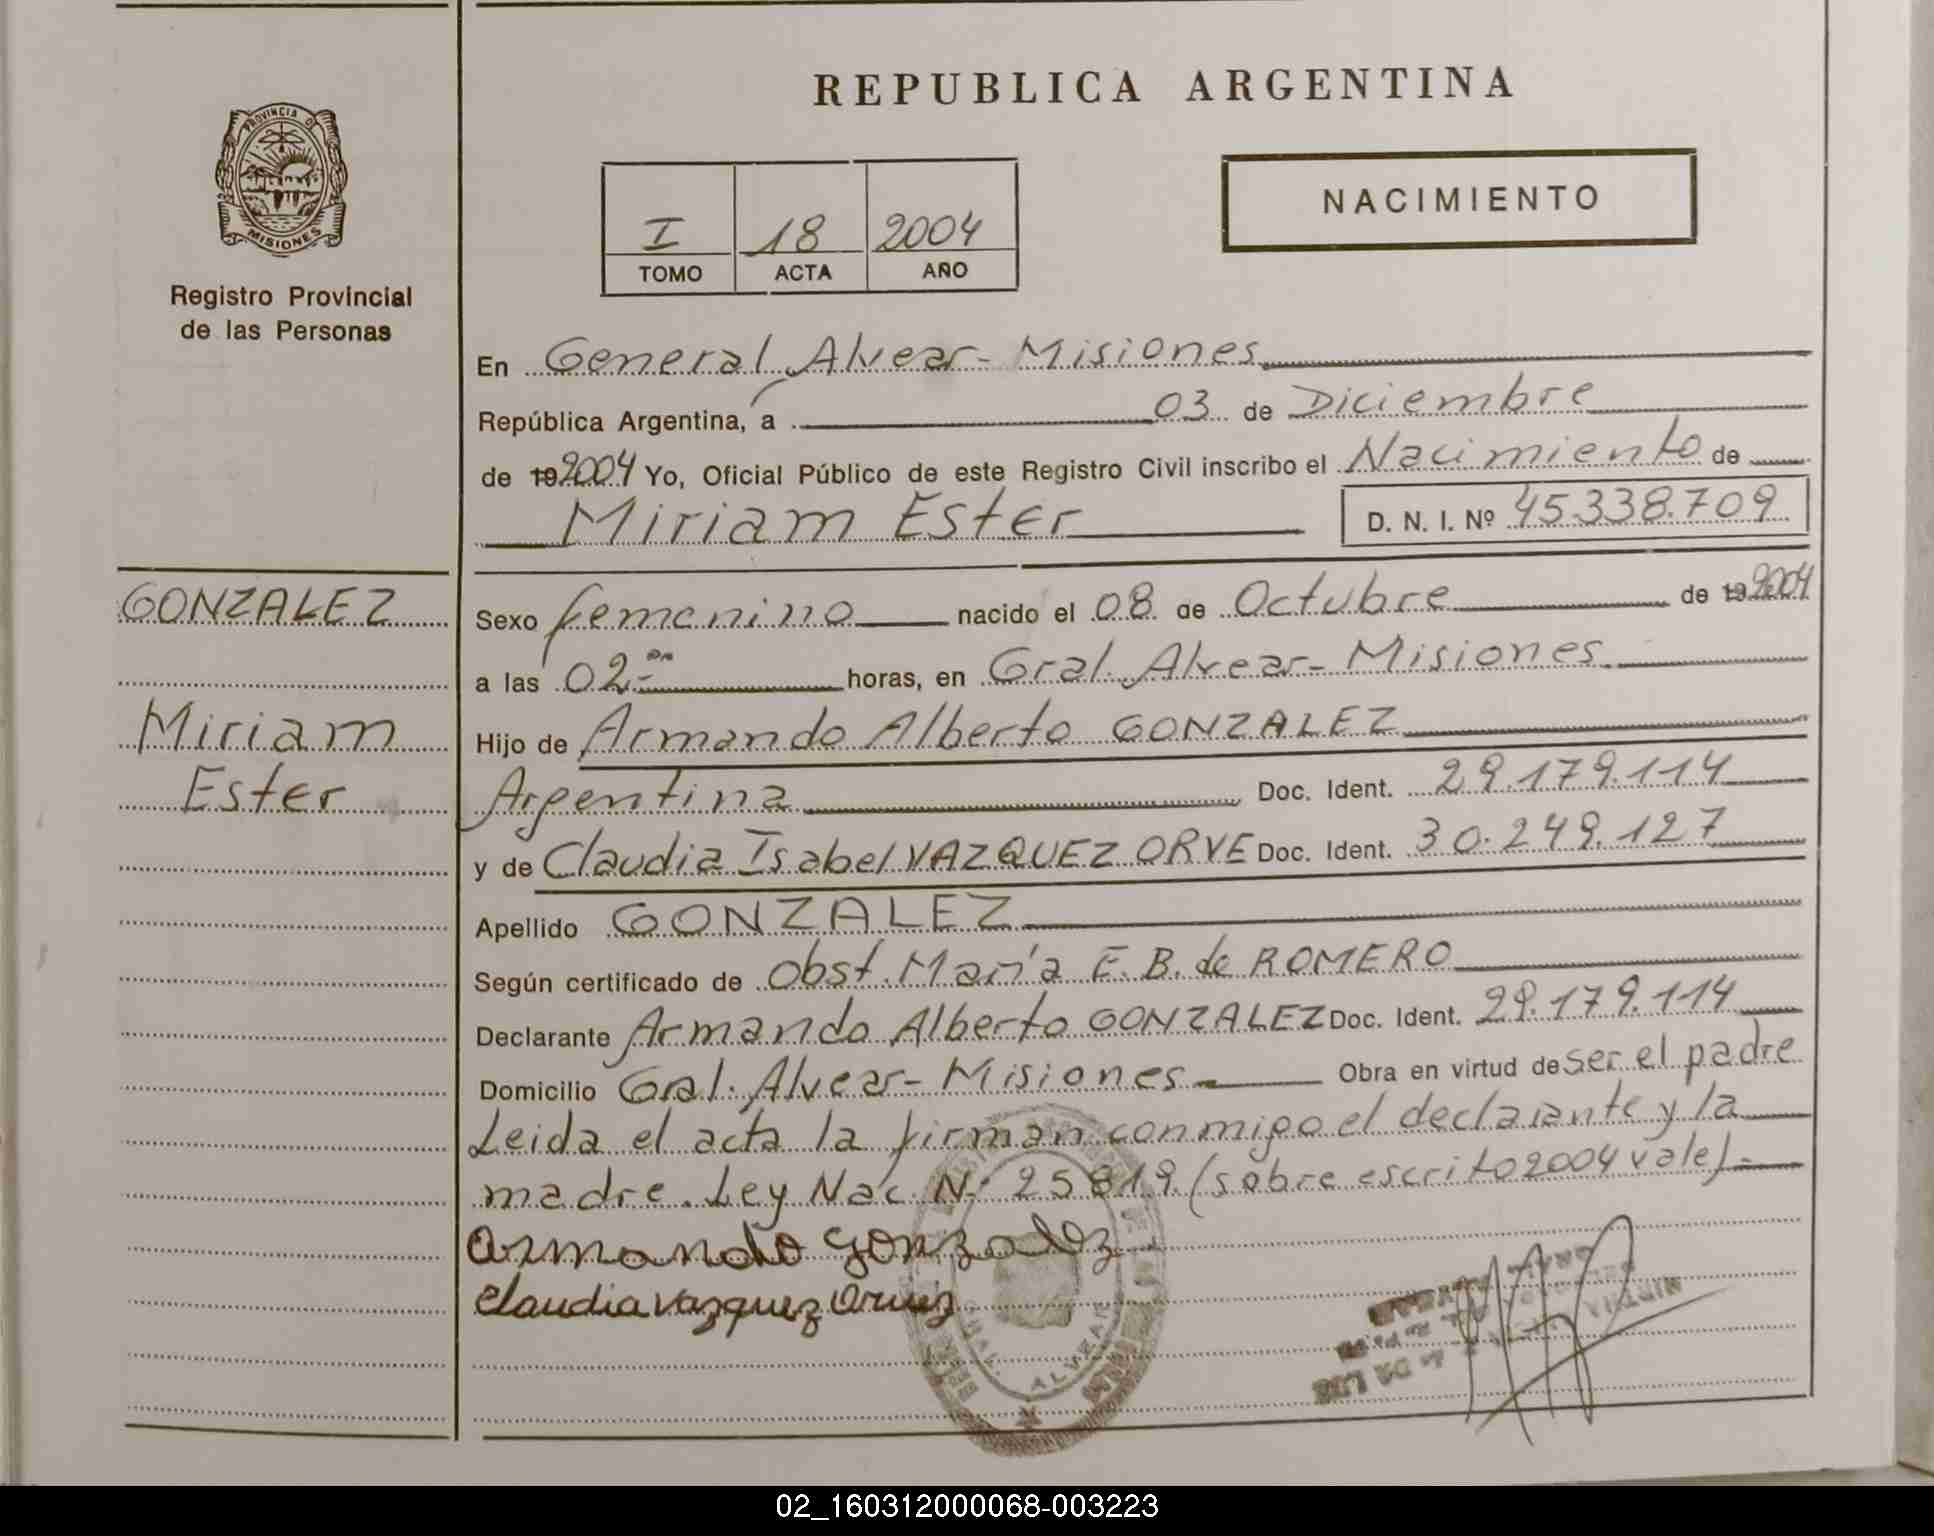 REPUBLICA ARGENTINA
PROVINCIA D
MISIONES
Registro Provincial
de las Personas
I 18 2004
TOMO ACTA AÑO
NACIMIENTO
En General Alvear - Misiones
República Argentina, a 03 de Diciembre
de 19 2004 Yo, Oficial Público de este Registro Civil inscribo el Nacimiento de
Miriam Ester D. N. I. Nº 45.338.709
GONZALEZ
Miriam
Ester
Sexo femenino nacido el 08 de Octubre de 19 2004
a las 02.- horas, en Gral. Alvear - Misiones
Hijo de Armando Alberto GONZALEZ
Argentina Doc. Ident. 29.179.114
y de Claudia Isabel VAZQUEZ ORVE Doc. Ident. 30.249.127
Apellido GONZALEZ
Según certificado de Obst. María E. B. de ROMERO
Declarante Armando Alberto GONZALEZ Doc. Ident. 29.179.114
Domicilio Gral. Alvear - Misiones Obra en virtud de ser el padre
Leida el acta la firman conmigo el declarante y la
madre. Ley Nac. N: 25819. (sobre escrito 2004 vale).-
Armando Gonzalez
Claudia Vazquez
GRAL. ALVEAR
02_160312000068-003223